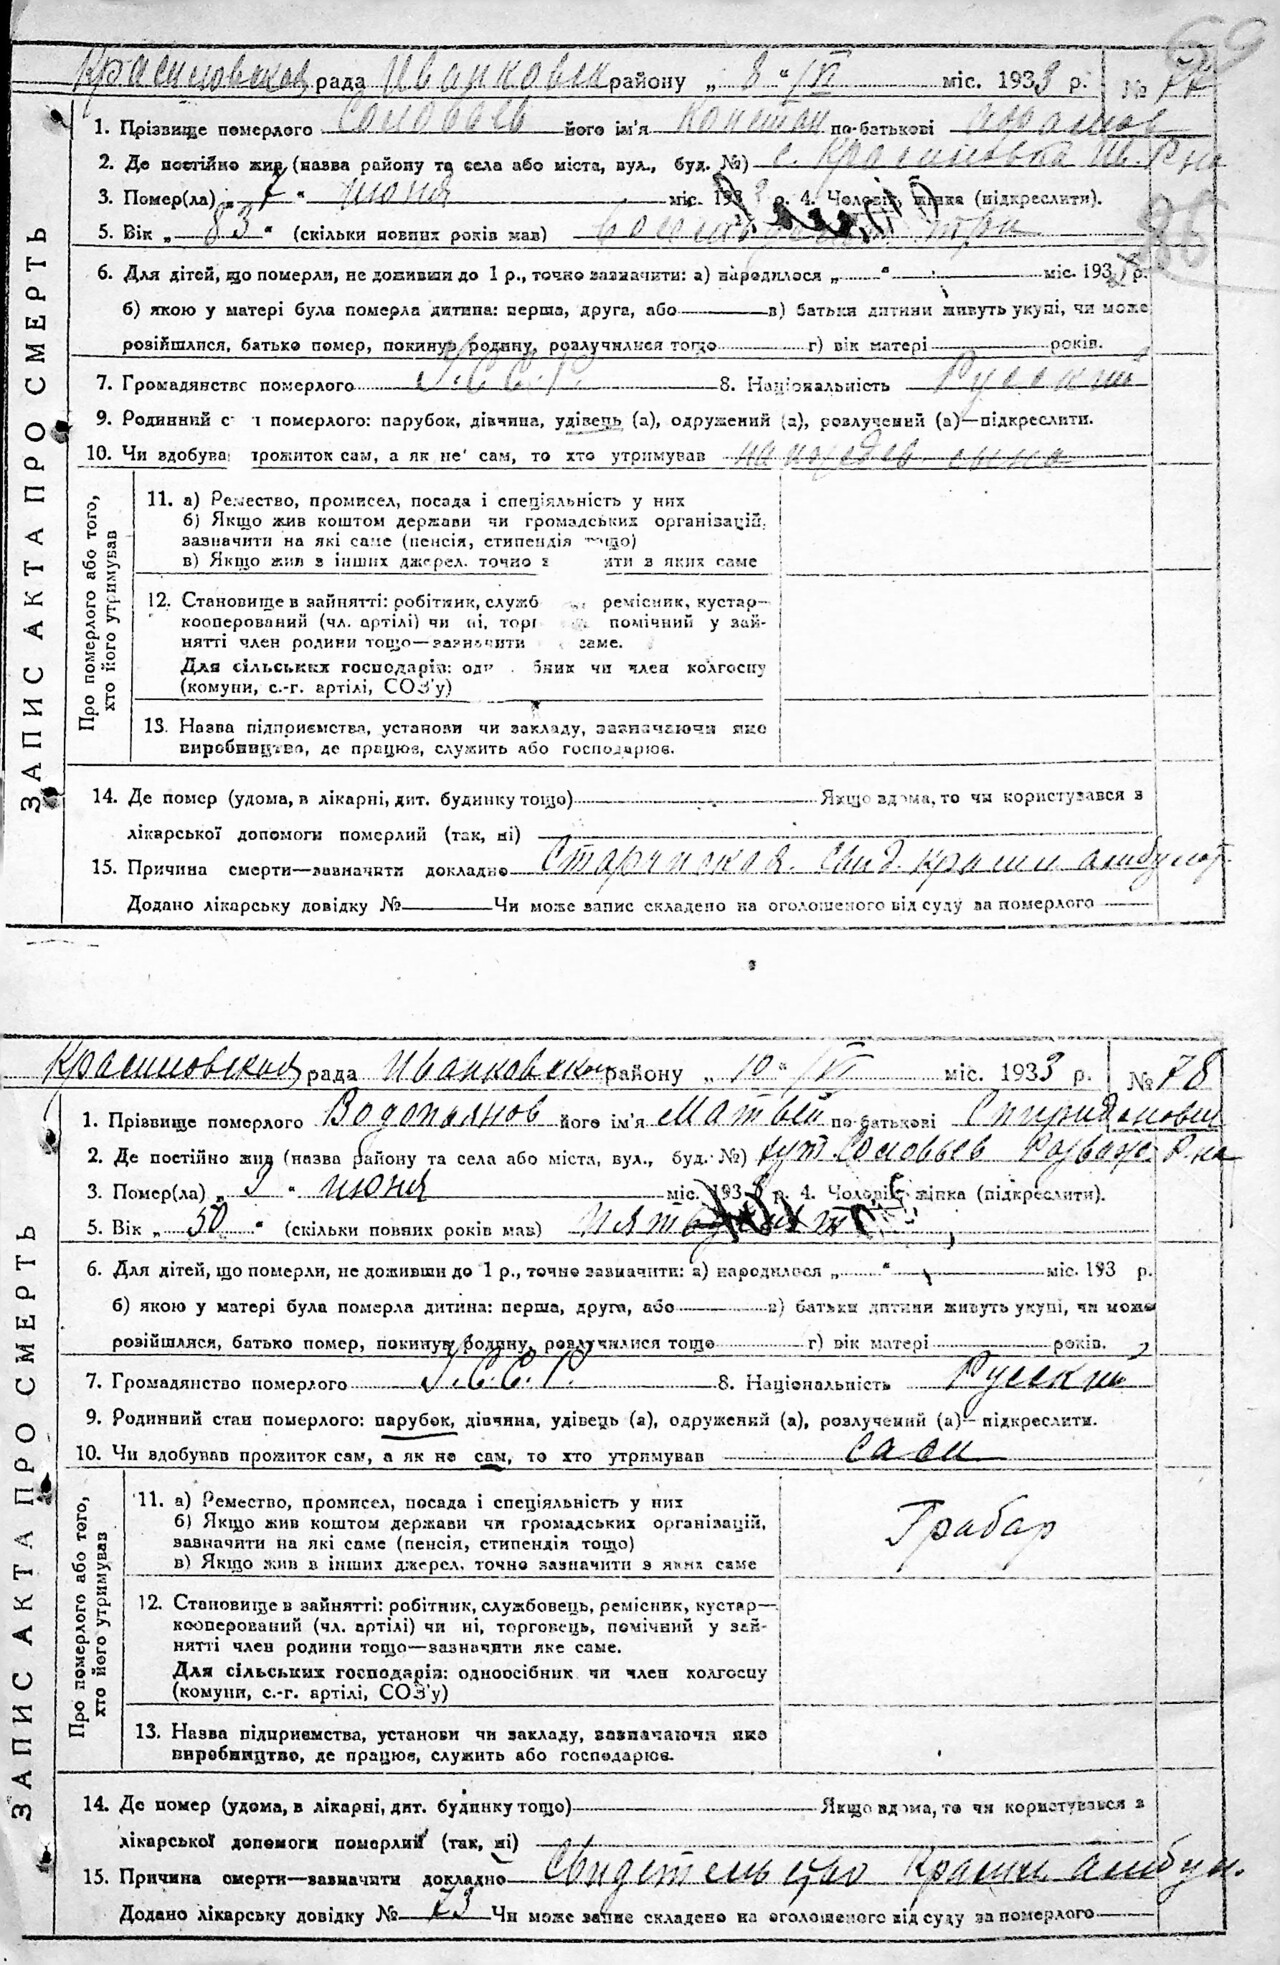 69
Красиловская рада Иванковск району „ 8 “ /VI міс. 1933 р. № 77
1. Прізвище померлого Соловьев його ім'я Констан по-батькові
2. Де постійно жив (назва району та села або міста, вул., буд. №) с. Красиловка Ив. Р на
3. Помер(ла) „ 7 “ июня міс. 1933 р. 4. Чоловік, жінка (підкреслити).
5. Вік „ 83 “ (скільки повних років мав) восемьдесят три
86
6. Для дітей, що померли, не доживши до 1 р., точно зазначити: а) народилося „ “ міс. 193 р.
б) якою у матері була померла дитина: перша, друга, або в) батьки дитини живуть укупі, чи може
розійшлися, батько помер, покинув родину, розлучилися тощо г) вік матері років.
7. Громадянство померлого У.С.С.Р. 8. Національність Русский
9. Родинний с н померлого: парубок, дівчина, удівець (а), одружений (а), розлучений (а)—підкреслити.
10. Чи здобува прожиток сам, а як не сам, то хто утримував на иждев сына
ЗАПИС АКТА ПРО СМЕРТЬ
Про померлого або того, хто його утримував
11. а) Ремество, промисел, посада і спеціяльність у них
б) Якщо жив коштом держави чи громадських організацій,
зазначити на які саме (пенсія, стипендія тощо)
в) Якщо жив з інших джерел, точно з ити з яких саме
12. Становище в зайнятті: робітник, служб ремісник, кустар—
кооперований (чл. артілі) чи ні, торг помічний у зай-
нятті член родини тощо—зазначити саме.
Для сільських господарів: од бник чи член колгоспу
(комуни, с.-г. артілі, СОЗ'у)
13. Назва підприємства, установи чи закладу, зазначаючи яке
виробництво, де працює, служить або господарює.
14. Де помер (удома, в лікарні, дит. будинку тощо) Якщо вдома, то чи користувався з
лікарської допомоги померлий (так, ні)
15. Причина смерти—зазначити докладно Старческая. свид. красил амбулат.
Додано лікарську довідку № Чи може запис складено на оголошеного від суду за померлого
Красиловская рада Иванковском району „ 10 “ /VI міс. 1933 р. № 78
1. Прізвище померлого Водопьянов його ім'я Матвей по-батькові Спиридонович
2. Де постійно жив (назва району та села або міста, вул., буд. №) хут Соловьев Розваж. Р на
3. Помер(ла) „ 9 “ июня міс. 1933 р. 4. Чоловік, жінка (підкреслити).
5. Вік „ 50 “ (скільки повних років мав) пятьдесят
6. Для дітей, що померли, не доживши до 1 р., точно зазначити: а) народилося „ “ міс. 193 р.
б) якою у матері була померла дитина: перша, друга, або в) батьки дитини живуть укупі, чи може
розійшлися, батько помер, покинув родину, розлучилися тощо г) вік матері років.
7. Громадянство померлого У.С.С.Р. 8. Національність Русский
9. Родинний стан померлого: парубок, дівчина, удівець (а), одружений (а), розлучений (а)—підкреслити.
10. Чи здобував прожиток сам, а як не сам, то хто утримував сам
ЗАПИС АКТА ПРО СМЕРТЬ
Про померлого або того, хто його утримував
11. а) Ремество, промисел, посада і спеціяльність у них
б) Якщо жив коштом держави чи громадських організацій,
зазначити на які саме (пенсія, стипендія тощо)
в) Якщо жив в інших джерел, точно зазначити з яких саме
Грабар
12. Становище в зайнятті: робітник, службовець, ремісник, кустар—
кооперований (чл. артілі) чи ні, торговець, помічний у зай-
нятті член родини тощо—зазначити яке саме.
Для сільських господарів: одноосібник чи член колгоспу
(комуни, с.-г. артілі, СОЗ'у)
13. Назва підприємства, установи чи закладу, зазначаючи яке
виробництво, де працює, служить або господарює.
14. Де помер (удома, в лікарні, дит. будинку тощо) Якщо вдома, то чи користувався з
лікарської допомоги померлий (так, ні)
15. Причина смерти—зазначити докладно Свидетельство Красил амбул.
Додано лікарську довідку № 73 Чи може запис складено на оголошеного від суду за померлого